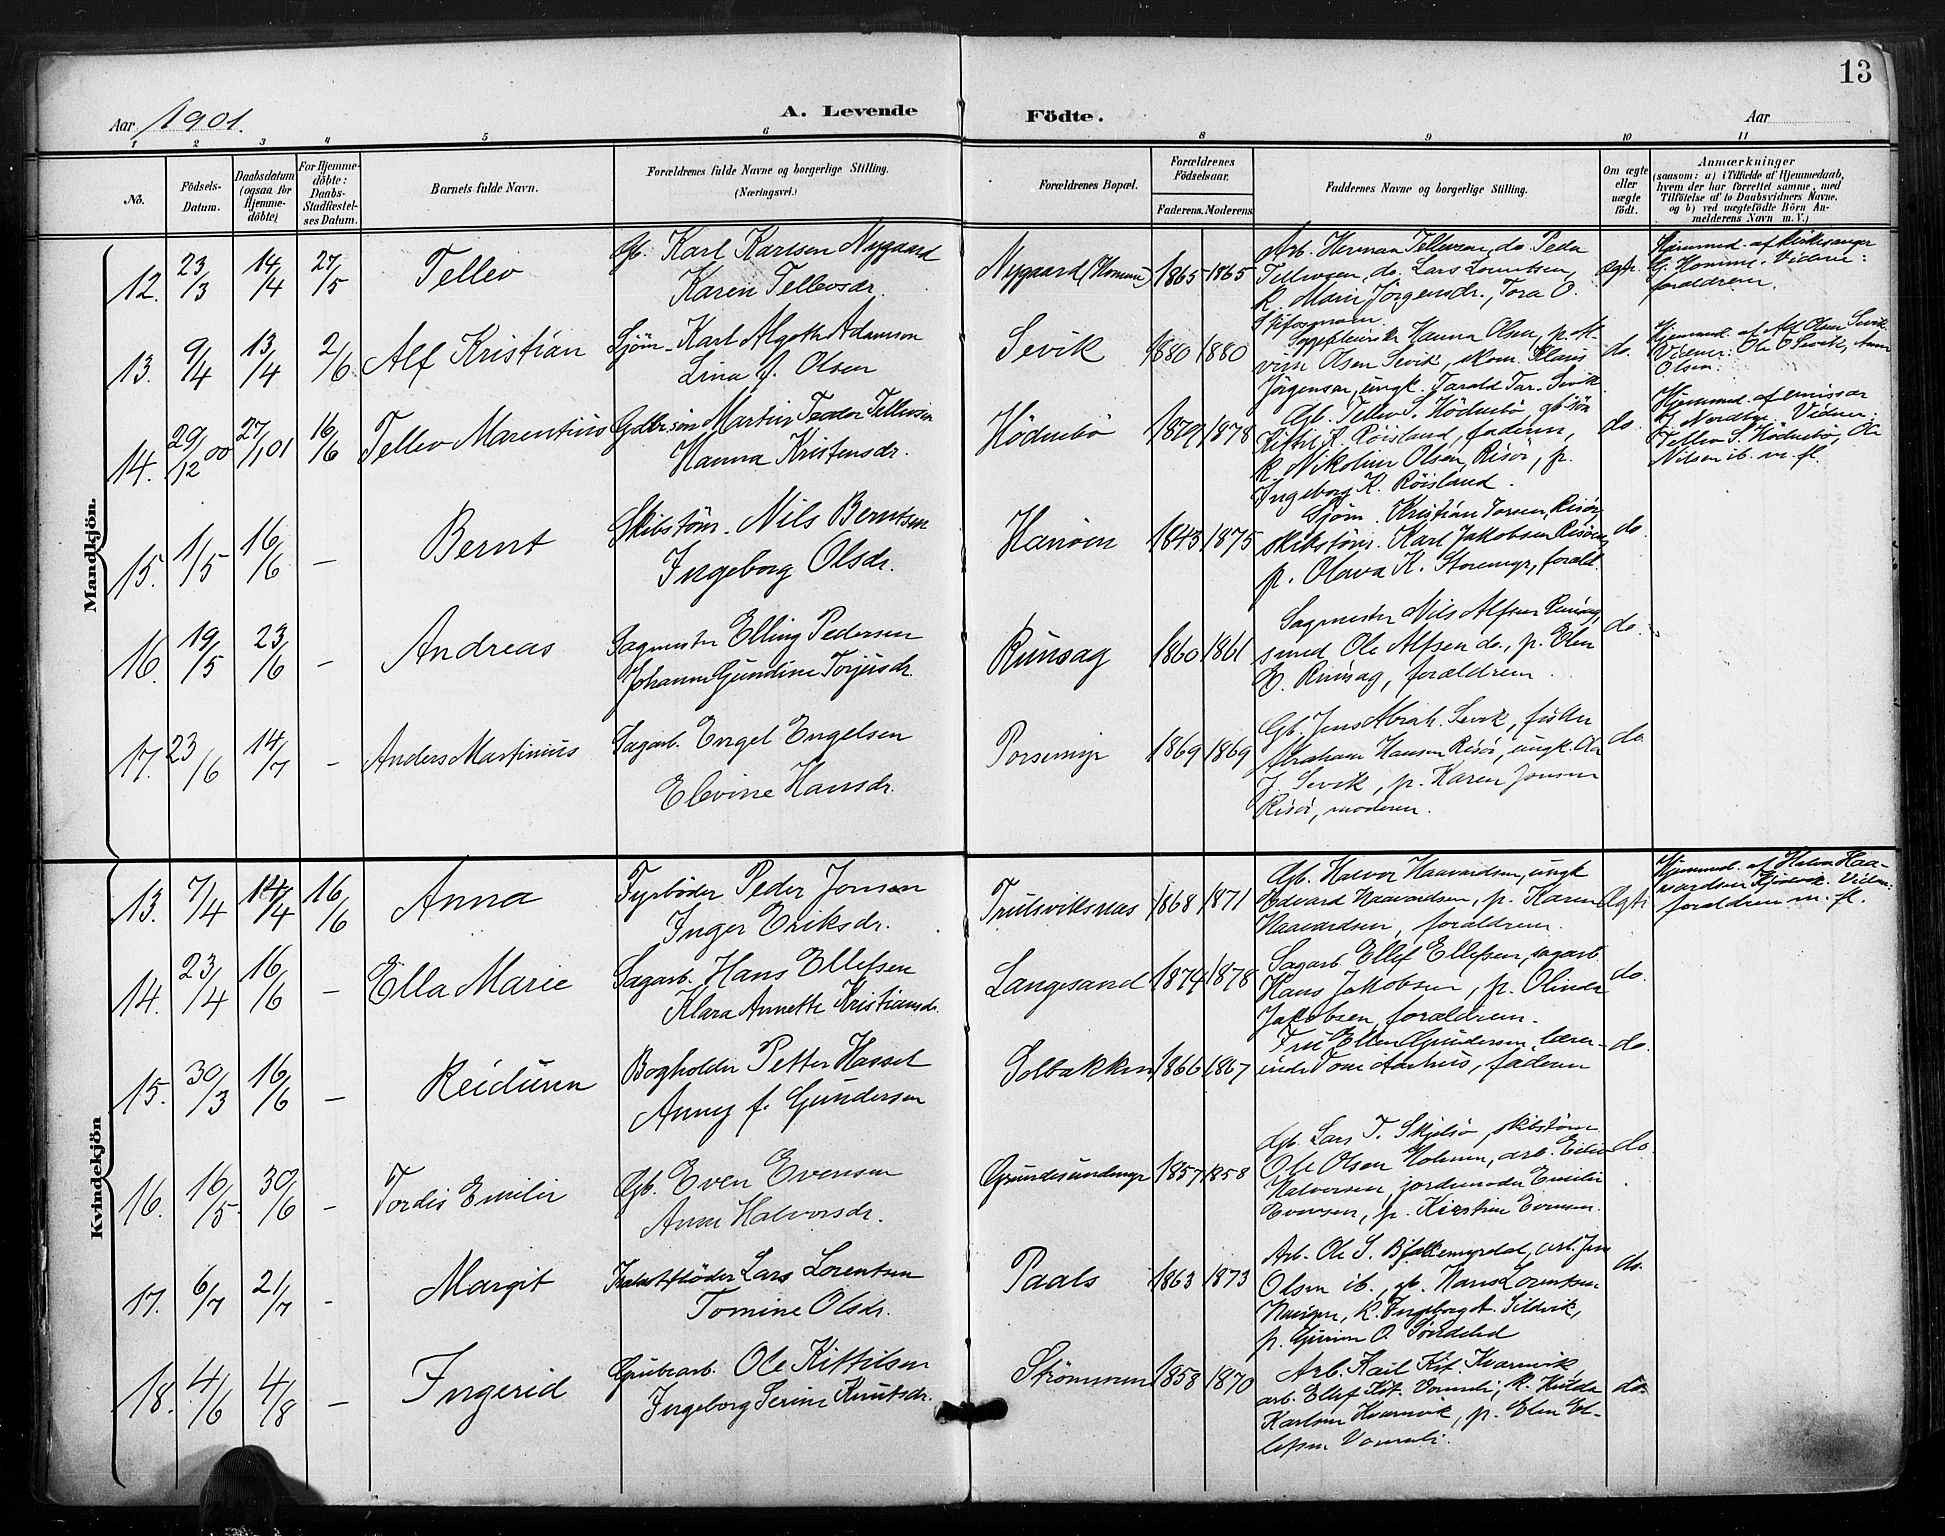 13
Aar 1901. A. Levende Födte. Aar
1 2 3 4 5 6 8 9 10 11
No.
Födsels-Datum.
Daabsdatum (ogsaa for Hjemme-döbte)
For Hjemme-döbte: Daabs-Stadfæstel-ses Datum.
Barnets fulde Navn.
Forældrenes fulde Navne og borgerlige Stilling.
(Næringsvei.)
Forældrenes Bopæl.
Forældrenes Födselsaar.
Faderens. Moderens.
Faddernes Navne og borgerlige Stilling.
Om ægte eller uægte födt.
Anmærkninger
(saasom: a) i Tilfælde af Hjemmedaab,
hvem der har forrettet samme, med
Tilföielse af to Daabsvidners Navne,
og b) ved uægtefödte Börn An-
melderens Navn m. V.)
Mandkjön.
12. 23/3 14/4 27/5 Tellev
Gb. Karl Karlsen Nygaard
Karen Tellevsdr.
Nygaard 1865 1865
Arb. Herman Tellevsen, do. Peder
Tellevsen, do. Lars Lorentsen,
k. Maria Jörgensdr., Tora O.
Hjemmed. af kirkesanger
G. Homme. Vidner:
forældrene.
13. 9/4 13/4 2/6 Alf Kristian
Sjöm. Karl Algoth Adamson
Lina f. Olsen
Sevik 1880 1880
Hanna Olsen, p. Al-
vine Olsen Sevik, skom. Klaus
Jörgensen, ungk. Tarald Tar. Sevik
do.
Hjemmed. af Alf Olsen Sevik.
Vidner: Ole O. Sevik, Anne
Olsen.
14. 29/12 00 27/1 01 16/6 Tellev Marentius
Gbbrsön Martin Teodor Tellevsen
Hanna Kristensdr.
Hödnebö 1879 1878
Gb. Tellev S. Hödnebö, gbsön
Kittil K. Röisland, faderen,
k. Nikoline Olsen, Risör, p.
Ingeborg K. Röisland.
do.
Hjemmed. af emissær
Nordbye. Vidner:
Tellev S. Hödnebö, Ole
Nilsen ib. m. fl.
15. 1/5 16/6 – Bernt
Skibstöm. Nils Berntsen
Ingeborg Olsdr.
Hanöen 1843 1875
Sjöm. Kristian Torsen, Risör,
skibstöm. Karl Jakobsen Risöen,
p. Olava K. Storemyr, foræld.
do.
16. 19/5 23/6 – Andreas
Sagmester Elling Pedersen
Johanne Gundine Torjusdr.
Runsag 1860 1861
Sagmester Nils Alfsen Runsag,
smed Ole Alfsen do., p. Elen
E. Runsag, forældrene.
do.
17. 23/6 14/7 – Anders Martinius
Sagarb. Engel Engelsen
Elevine Hansdr.
Porsemyr 1869 1869
Gb. Jens Abrah. Sevik, fisker
Abraham Hansen Risör, ungk. Aa.
J. Sevik, p. Karen Jonsen
Risör, moderen.
do.
Kvindekjön
13. 7/4 14/4 16/6 Anna
Fyrböder Peder Jonsen
Inger Eriksdr.
Trulsviksnæs 1868 1871
Gb. Halvor Haavardsen, ungk.
Edvard Haavardsen, p. Karen
Haavardsen, forældrene.
Ægte
Hjemmed. af Halvor Haa-
vardsen. Vidner:
forældrene m. fl.
14. 23/4 16/6 – Ella Marie
Sagarb. Hans Ellefsen
Klara Annette Kristiansdr.
Langesand 1874 1878
Sagarb. Ellef Ellefsen, sagarb.
Hans Jakobsen, p. Olinda
Jakobsen, forældrene.
do.
15. 30/3 16/6 – Reidunn
Bogholder Petter Hassel
Anny f. Gundersen
Solbakken 1866 1867
Frue Ellen Gundersen, lærer-
inde Tone Aarhus, faderen
do.
16. 16/5 30/6 – Tordis Emilie
Gb. Even Evensen
Anne Halvorsdr.
Grundesundmyr 1857 1858
Gb. Lars T. Skjelsö, skibstöm.
Ole Olsen Holmen, arb. Eilev
Halvorsen, jordemoder Emilie
Evensen, p. Kirstine Evensen.
do.
17. 6/7 21/7 – Margit
Lars Lorentsen
Tomine Olsdr.
Paals 1863 1873
Arb. Ole S. Bjellemyrdal, arb. Jens
Olsen ib., gb. Hans Lorentsen
k. Ingeborg A. Sildvik,
p. Gurine O. Söndeled
do.
18. 4/6 4/8 – Ingerid
Grubearb. Ole Kittilsen
Ingeborg Serine Knutsdr.
Strömmen 1858 1870
Arb. Karl Kit. Kvarnvik,
arb. Ellef Kit. Vormeli, k. Hulda
Karlsen Kvarnvik, p. Elen El-
lefsen Vormeli.
do.